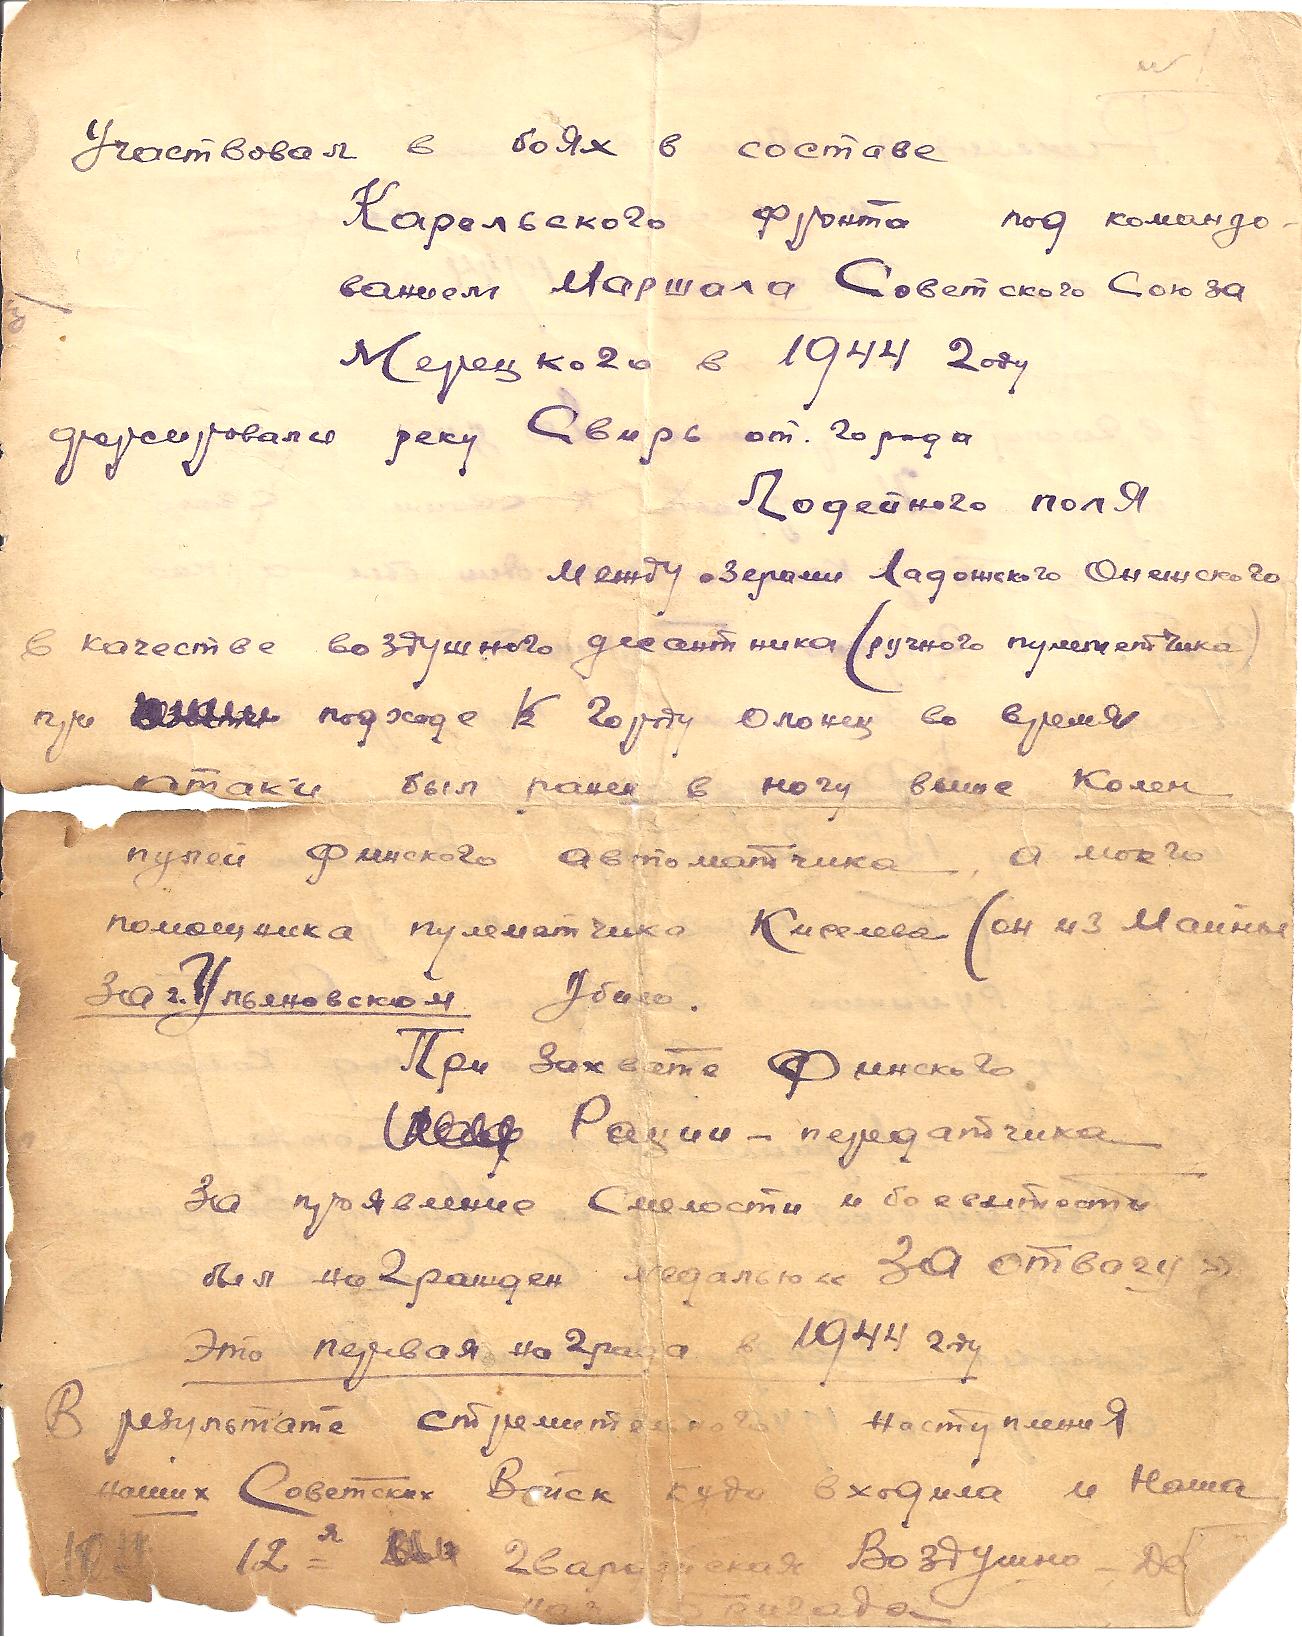 Участвовал в боях в составе
Карельского фронта под командо-
ванием Маршала Советского Союза
Мерецкого в 1944 году
форсировали реку Свирь от. города
Лодейного поля
между озерами Ладожского Онежского
в качестве воздушного десантника (ручного пулеметчика)
при подходе к городу Олонец во время
атаки был ранен в ногу выше колен
пулей финского автоматчика, а моего
помощника пулеметчика Киселева (он из Майны
за г. Ульяновском убило.
При захвате Финского
Рации - передатчика
За проявление Смелости и
был награжден медалью « За отвагу »
Это первая награда в 1944 году
В результате стремительного наступления
наших Советских Войск куда входила и Наша
12 = я гвардейская Воздушно - Де
бригада